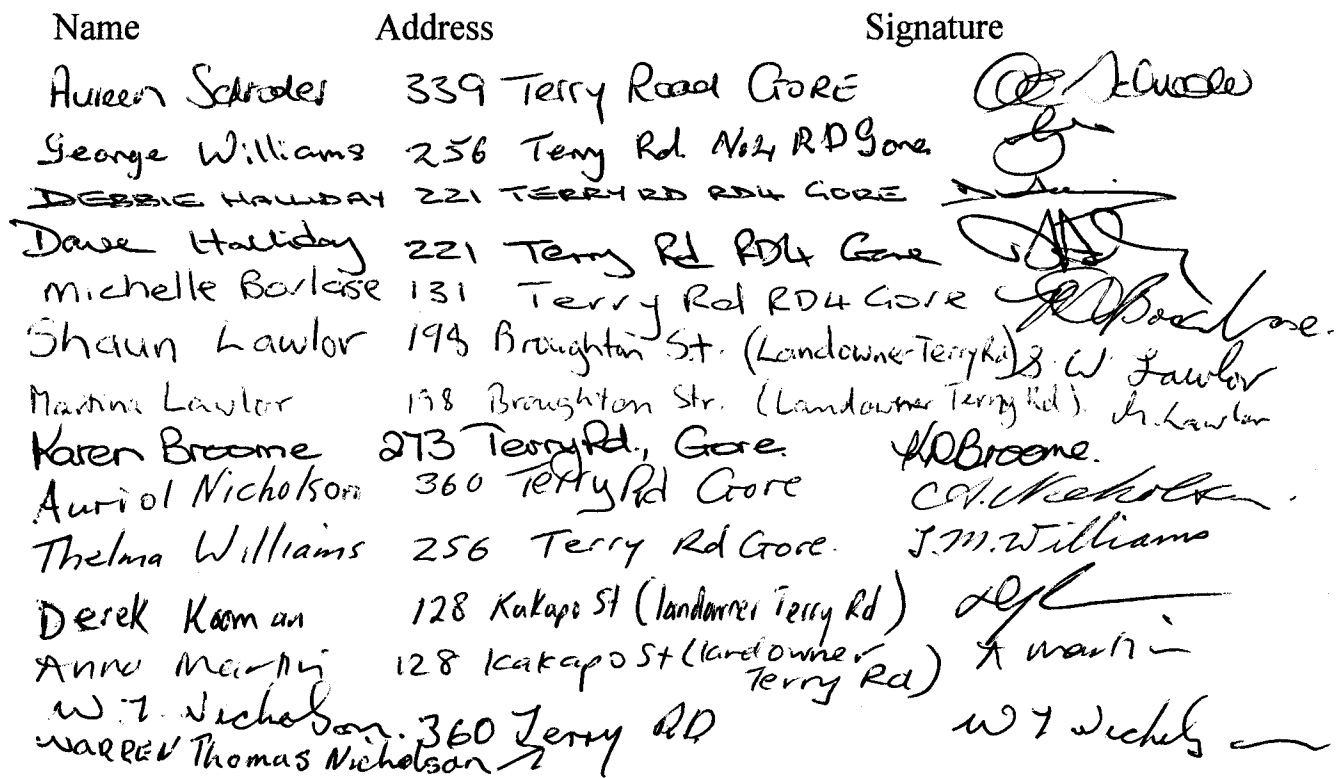 Name Address Signature
Aureen Schroder 339 Terry Road GORE
George Williams 256 Terry Rd. No.4 RD Gore
DEBBIE HALLIDAY 221 TERRY RD RD4 GORE
Dave Halliday 221 Terry Rd RD4 Gore
Michelle Borlase 131 Terry Rd RD4 Gore Borlase.
Shaun Lawlor 198 Broughton St. (Landowner Terry Rd) S W Lawlor
Martina Lawlor 198 Broughton Str. (Landowner Terry Rd). M. Lawlor
Karen Broome 273 Terry Rd., Gore. KDBroome.
Auriol Nicholson 360 Terry Rd Gore A. Nicholson.
Thelma Williams 256 Terry Rd Gore. T.M. Williams
Derek Kooman 128 Kakapo St (landowner Terry Rd)
Anne Martin 128 Kakapo St (landowner Terry Rd) A Martin
W T Nicholson. 360 Terry RD W T Nicholson
WARREN Thomas Nicholson